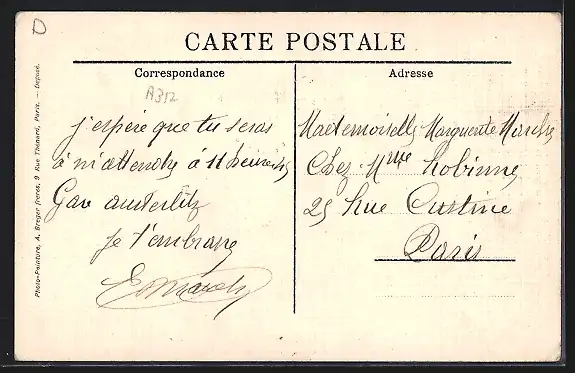 D
CARTE POSTALE
Correspondance
Adresse
A312
j'espère que tu seras
à m'attendre à 11 heures
Gare austerlitz
Je t'embrasse
Mademoiselle Marguerite
Chez Mme Robinne
25 Rue Custine
Paris
Photo-Peinture, A. Breger frères, 9 Rue Thénard, Paris. — Déposé.